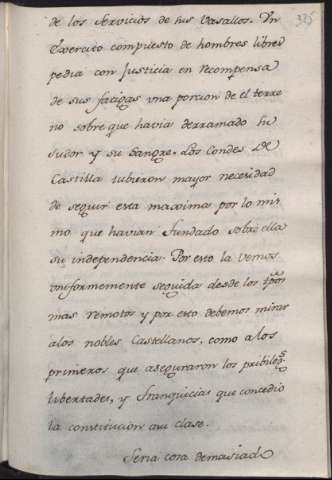 de los Servicios de sus Vasallos. Un
Exercito compuesto de hombres libres
pedia con Justicia en recompensa
de sus fatigas una porcion de el terre
no sobre que havia derramado su
sudor y su sangre. Los Condes de
Castilla tubieron mayor necesidad
de seguir esta maxima por lo mis
mo que havian fundado sobre ella
su independencia. Por esto la vemos
conformemente seguida desde los tpos
mas remotos y por esto debemos mirar
a los nobles Castellanos, como a los
primeros que aseguraron los pribileg.s
libertades, y franquicias que concedio
la constitucion a su clase.
Seria cosa demasiado